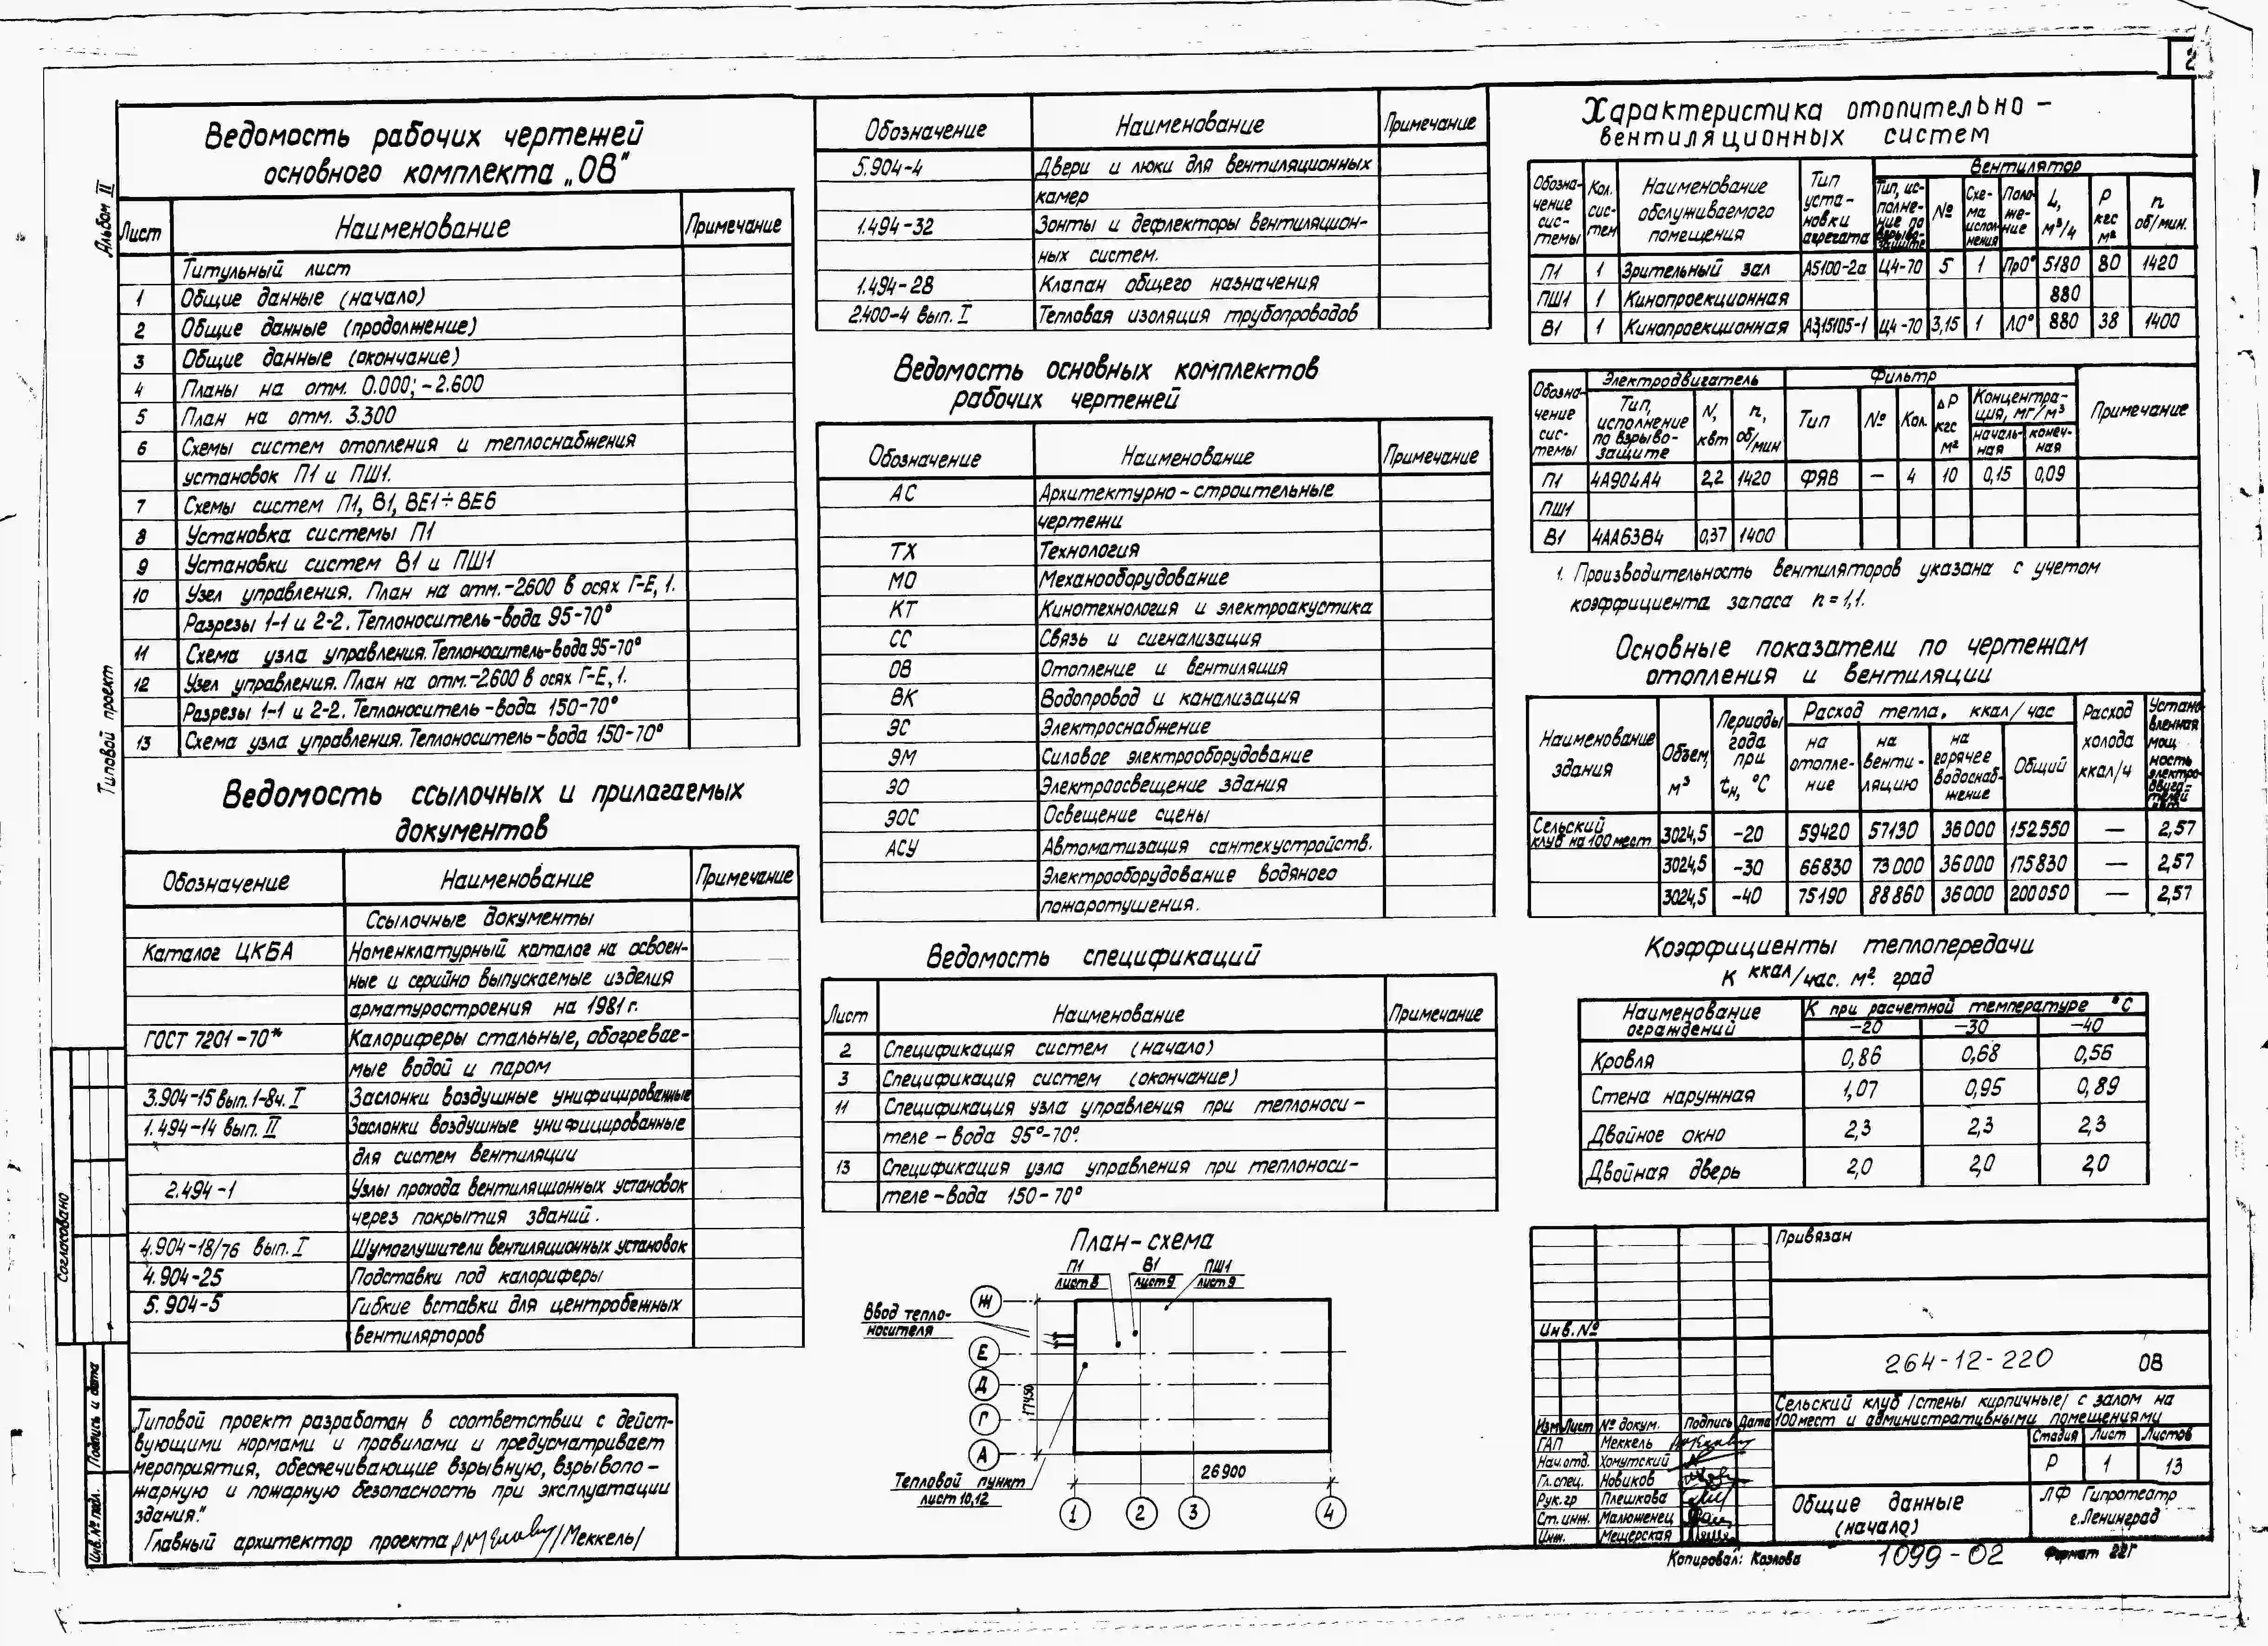 2
Альбом II
Типовой проект
Ведомость рабочих чертежей
основного комплекта „ОВ"
Лист Наименование Примечание
Титульный лист
1 Общие данные (начало)
2 Общие данные (продолжение)
3 Общие данные (окончание)
4 Планы на отм. 0.000; -2.600
5 План на отм. 3.300
6 Схемы систем отопления и теплоснабжения
установок П1 и ПШ1.
7 Схемы систем П1, В1, ВЕ1÷ВЕ6
8 Установка системы П1
9 Установки систем В1 и ПШ1
10 Узел управления. План на отм.-2.600 в осях Г-Е, 1.
Разрезы 1-1 и 2-2. Теплоноситель-вода 95-70°
11 Схема узла управления. Теплоноситель-вода 95-70°
12 Узел управления. План на отм.-2.600 в осях Г-Е, 1.
Разрезы 1-1 и 2-2. Теплоноситель-вода 150-70°
13 Схема узла управления. Теплоноситель-вода 150-70°
Ведомость ссылочных и прилагаемых
документов
Обозначение Наименование Примечание
Ссылочные документы
Каталог ЦКБА Номенклатурный каталог на освоен-
ные и серийно выпускаемые изделия
арматуростроения на 1981г.
ГОСТ 7201-70* Калориферы стальные, обогревае-
мые водой и паром
3.904-15 вып. 1-8ч. I Заслонки воздушные унифицированные
1.494-14 вып. II Заслонки воздушные унифицированные
для систем вентиляции
2.494-1 Узлы прохода вентиляционных установок
через покрытия зданий.
4.904-18/76 вып. I Шумоглушители вентиляционных установок
4.904-25 Подставки под калориферы
5.904-5 Гибкие вставки для центробежных
вентиляторов
„Типовой проект разработан в соответствии с дейст-
вующими нормами и правилами и предусматривает
мероприятия, обеспечивающие взрывную, взрывопо-
жарную и пожарную безопасность при эксплуатации
здания."
Главный архитектор проекта /Меккель/
Согласовано
Подпись и дата
Инв. № подл.
Обозначение Наименование Примечание
5.904-4 Двери и люки для вентиляционных
камер
1.494-32 Зонты и дефлекторы вентиляцион-
ных систем.
1.494-28 Клапан общего назначения
2.400-4 вып. I Тепловая изоляция трубопроводов
Ведомость основных комплектов
рабочих чертежей
Обозначение Наименование Примечание
АС Архитектурно-строительные
чертежи
ТХ Технология
МО Механооборудование
КТ Кинотехнология и электроакустика
СС Связь и сигнализация
ОВ Отопление и вентиляция
ВК Водопровод и канализация
ЭС Электроснабжение
ЭМ Силовое электрооборудование
ЭО Электроосвещение здания
ЭОС Освещение сцены
АСУ Автоматизация сантехустройств.
Электрооборудование водяного
пожаротушения.
Ведомость спецификаций
Лист Наименование Примечание
2 Спецификация систем (начало)
3 Спецификация систем (окончание)
11 Спецификация узла управления при теплоноси-
теле - вода 95°-70°.
13 Спецификация узла управления при теплоноси-
теле - вода 150-70°
План-схема
П1 В1 ПШ1
лист 8 лист 9 лист 9
Ввод тепло-
носителя
Ж
Е
Д
Г
А
17450
Тепловой пункт
лист 10,12
26900
1 2 3 4
Характеристика отопительно-
вентиляционных систем
Обозна-чение сис-темы Кол. сис-тем Наименование обслуживаемого помещения Тип уста-новки агрегата Вентилятор
Тип, ис-полне-ние по взрыво-защите № Схе-ма испол-нения Поло-же-ние L, м³/ч P кгс м² n об/мин.
П1 1 Зрительный зал А5100-2а Ц4-70 5 1 Пр0° 5180 80 1420
ПШ1 1 Кинопроекционная 880
В1 1 Кинопроекционная А3,15105-1 Ц4-70 3,15 1 Л0° 880 38 1400
Обозна-чение сис-темы Электродвигатель Фильтр Примечание
Тип, исполнение по взрыво-защите N, квт n, об/мин Тип № Кол. ΔP кгс м² Концентра-ция, мг/м³
началь-ная конеч-ная
П1 4А90L4 2,2 1420 ФЯВ — 4 10 0,15 0,09
ПШ1
В1 4АА63В4 0,37 1400
1. Производительность вентиляторов указана с учетом
коэффициента запаса n=1,1.
Основные показатели по чертежам
отопления и вентиляции
Наименование здания Объем, м³ Периоды года при tн, °С Расход тепла, ккал/час Расход холода ккал/ч Устано-вленная мощ-ность электро-двига-телей квт
на отопле-ние на венти-ляцию на горячее водоснаб-жение Общий
Сельский клуб на 100 мест 3024,5 -20 59420 57130 36000 152550 — 2,57
3024,5 -30 66830 73000 36000 175830 — 2,57
3024,5 -40 75190 88860 36000 200050 — 2,57
Коэффициенты теплопередачи
К ккал/час. м². град
Наименование ограждений К при расчетной температуре °С
-20 -30 -40
Кровля 0,86 0,68 0,56
Стена наружная 1,07 0,95 0,89
Двойное окно 2,3 2,3 2,3
Двойная дверь 2,0 2,0 2,0
Привязан
Инв. №
264-12-220 ОВ
Сельский клуб /стены кирпичные/ с залом на
100 мест и административными помещениями
Изм Лист № докум. Подпись Дата
ГАП Меккель
Нач. отд. Хомутский
Гл. спец. Новиков
Рук. гр Плешкова
Ст. инж. Малюженец
Инж. Мещерская
Стадия Лист Листов
Р 1 13
Общие данные
(начало)
ЛФ Гипротеатр
г. Ленинград
Копировал: Козлова 1099-02 Формат 22Г